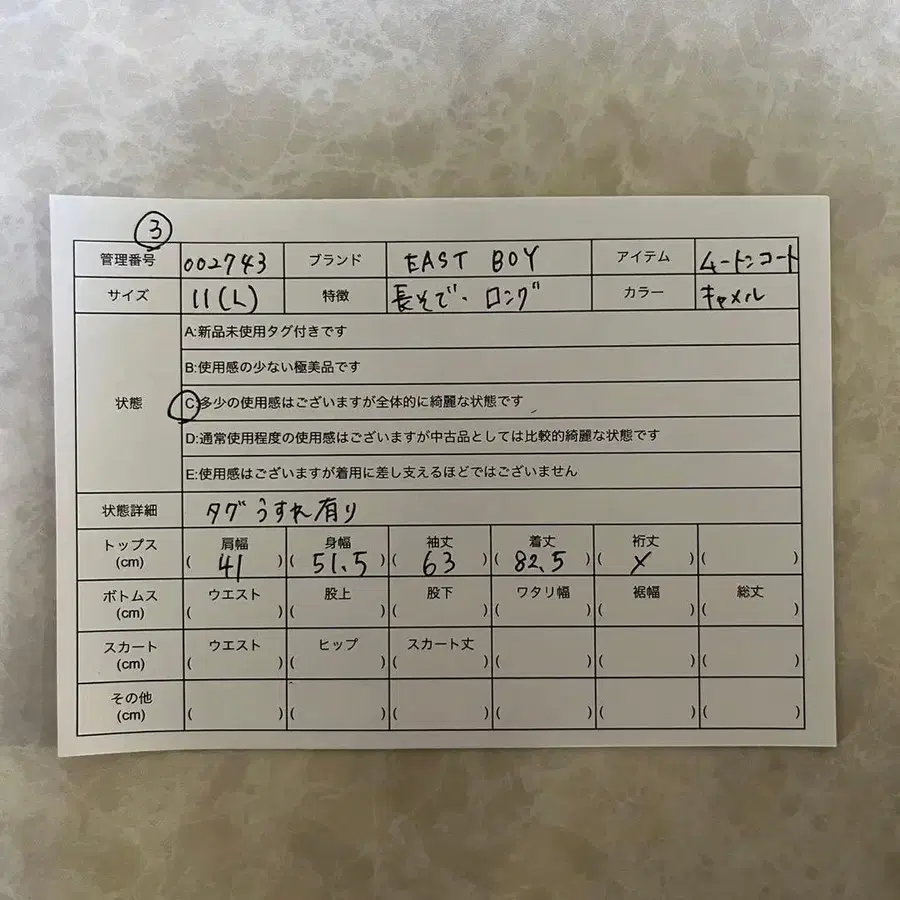 ③
管理番号 002743 ブランド EAST BOY アイテム ムートンコート
サイズ 11(L) 特徴 長そで・ロング カラー キャメル
状態
A:新品未使用タグ付きです
B:使用感の少ない極美品です
C:多少の使用感はございますが全体的に綺麗な状態です
D:通常使用程度の使用感はございますが中古品としては比較的綺麗な状態です
E:使用感はございますが着用に差し支えるほどではございません
状態詳細 タグうすれ有り
トップス(cm) 肩幅(41) 身幅(51.5) 袖丈(63) 着丈(82.5) 裄丈(×) ( )
ボトムス(cm) ウエスト( ) 股上( ) 股下( ) ワタリ幅( ) 裾幅( ) 総丈( )
スカート(cm) ウエスト( ) ヒップ( ) スカート丈( ) ( ) ( ) ( )
その他(cm) ( ) ( ) ( ) ( ) ( ) ( )